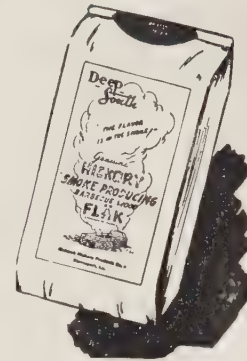 Deep
South
"THE FLAVOR
IS IN THE SMOKE"
Genuine
HICKORY
SMOKE PRODUCING
BARBECUE WOOD
FLAK
Hickory Products Co.